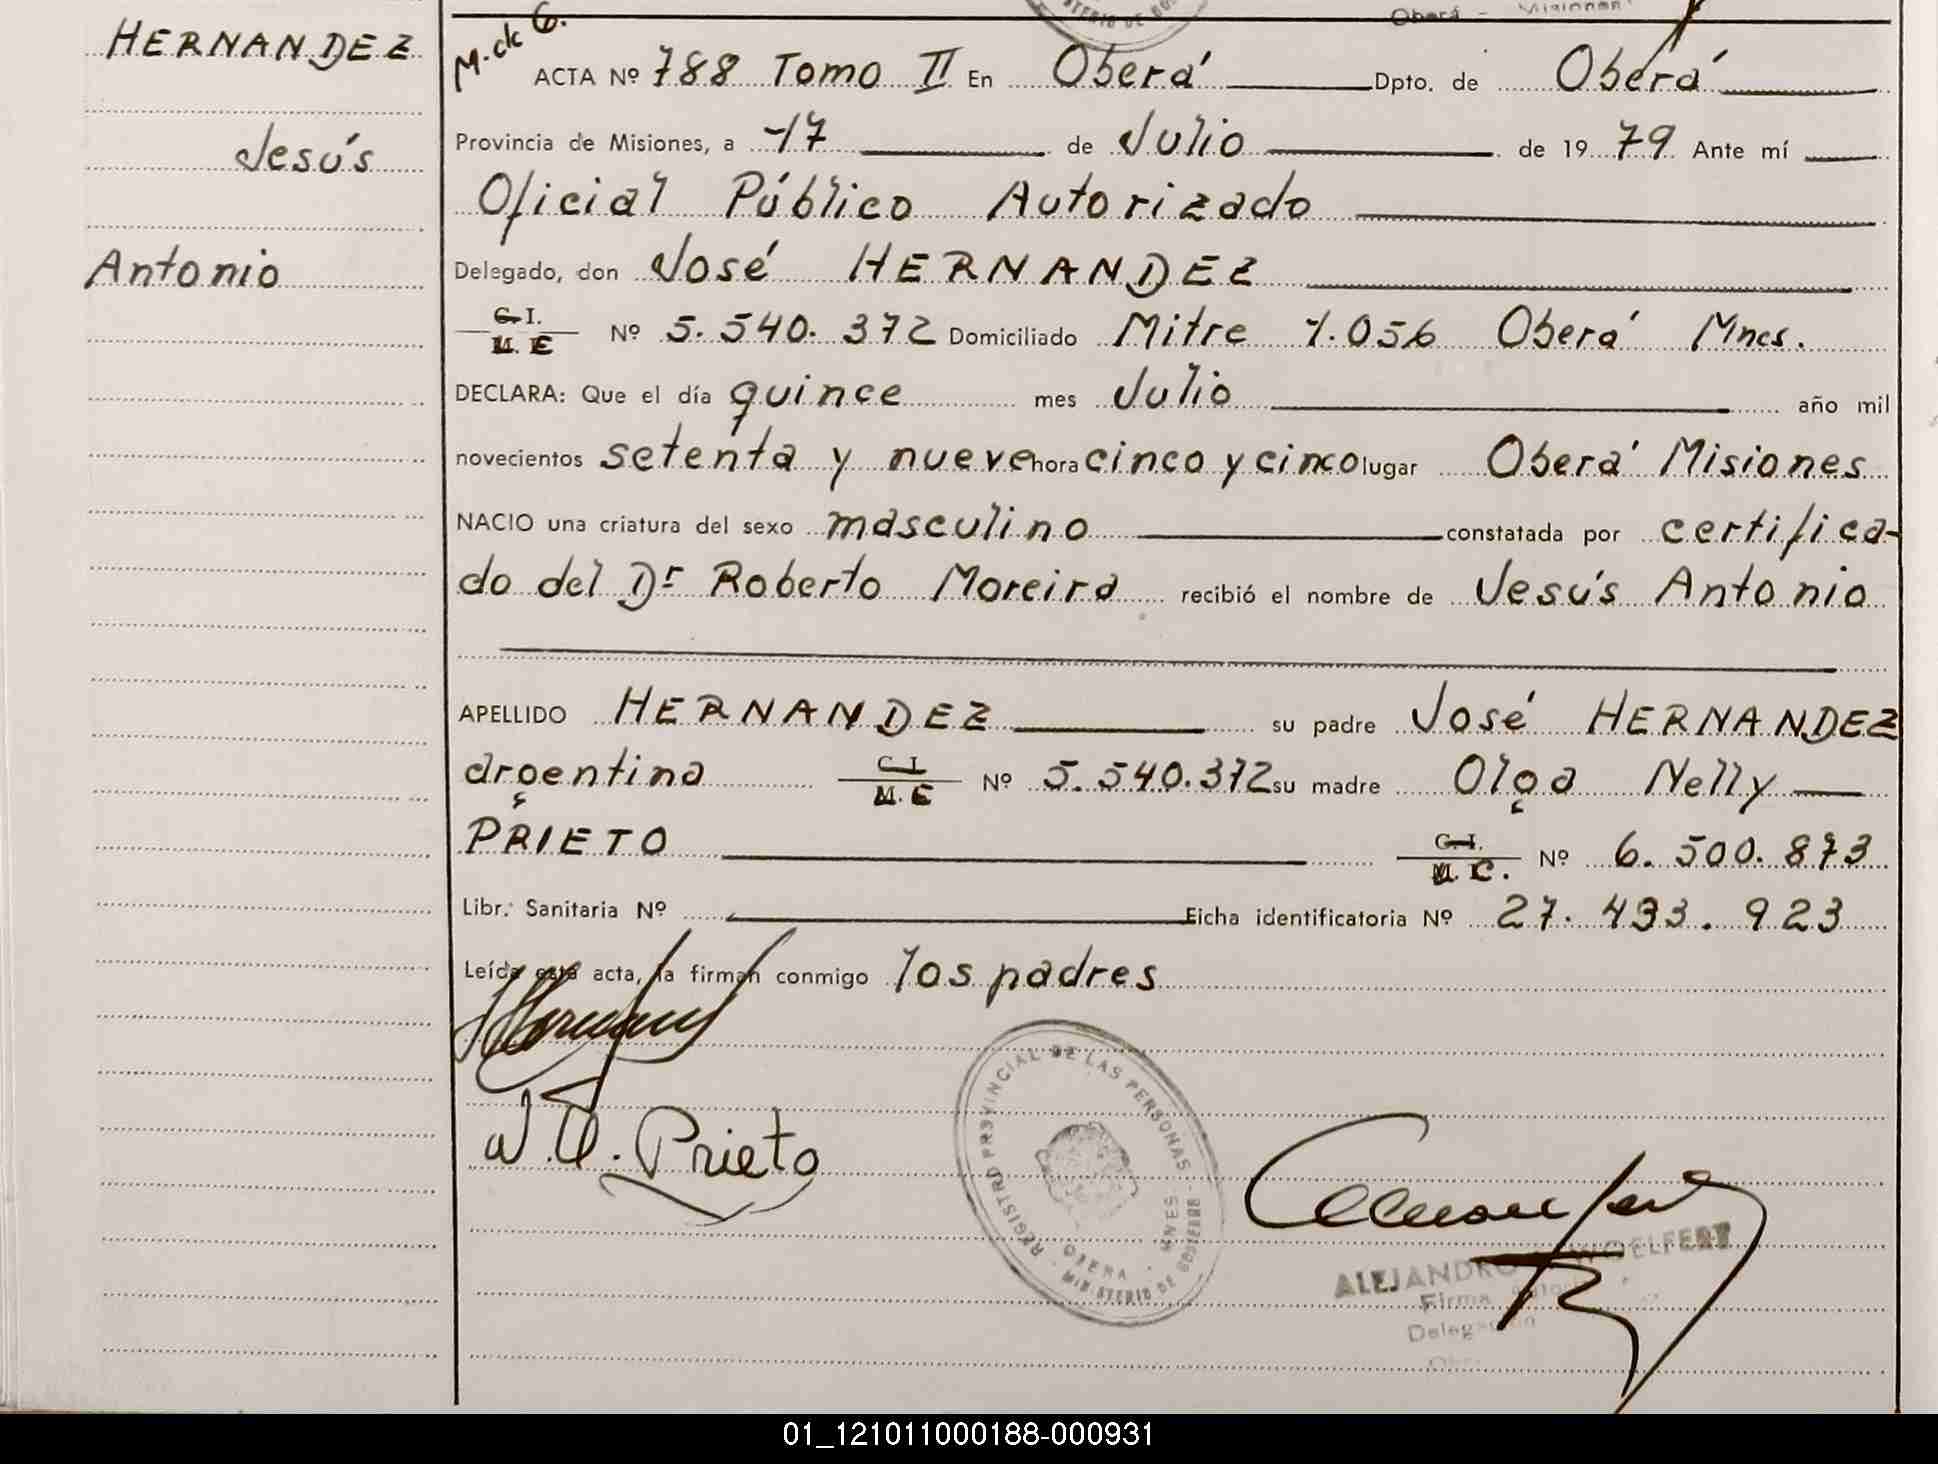 Oberá - Misiones
HERNANDEZ
Jesús
Antonio
M. de G.
ACTA Nº 788 Tomo II En Oberá Dpto. de Oberá
Provincia de Misiones, a 17 de Julio de 1979 Ante mí
Oficial Público Autorizado
Delegado, don José HERNANDEZ
C.I. M. E Nº 5.540.372 Domiciliado Mitre 1.056 Oberá Mnes.
DECLARA: Que el día quince mes Julio año mil
novecientos setenta y nueve hora cinco y cinco lugar Oberá Misiones
NACIO una criatura del sexo masculino constatada por certifica-
do del Dr Roberto Moreira recibió el nombre de Jesús Antonio
APELLIDO HERNANDEZ su padre José HERNANDEZ
argentina C.I. M. E Nº 5.540.372 su madre Olga Nelly
PRIETO C.I. M. C. Nº 6.500.873
Libr. Sanitaria Nº Ficha identificatoria Nº 27.433.923
Leída esta acta, la firman conmigo los padres
Prieto
REGISTRO PROVINCIAL DE LAS PERSONAS
OBERA - MNES
MINISTERIO DE GOBIERNO
ALEJANDRO WOELFERT
Firma
Delegación
01_121011000188-000931